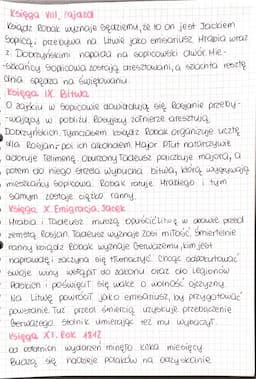 Księga VIII. Zajazd
Ksiądz Robak wyznaje Sędziemu, że to on jest Jackiem
Soplicą, przebywa na Litwie jako emisariusz. Hrabia wraz
z Dobrzyńskimi napada na soplicowski dwór. Mie-
-szkańcy Soplicowa zostają aresztowani, a szlachta resztę
dnia spędza na świętowaniu.
Księga IX. Bitwa
O zajściu w Soplicowie dowiadują się Rosjanie przeby-
-wający w pobliżu. Rosyjscy żołnierze aresztują
Dobrzyńskich. Tymczasem ksiądz Robak organizuje ucztę
dla Rosjan i poi ich alkoholem. Major Płut natarczywie
adoruje Telimenę. Oburzony Tadeusz policzkuje majora, a
potem do niego strzela. Wybucha bitwa, którą wygrywają
mieszkańcy Soplicowa. Robak ratuje Hrabiego i tym
samym zostaje ciężko ranny.
Księga X. Emigracja. Jacek
Hrabia i Tadeusz muszą opuścić Litwę w obawie przed
zemstą Rosjan. Tadeusz wyznaje Zosi miłość. Śmiertelnie
ranny ksiądz Robak wyznaje Gerwazemu, kim jest
naprawdę i zaczyna się tłumaczyć. Chcąc odpokutować
swoje winy wstąpił do zakonu oraz do Legionów
Polskich i poświęcił się walce o wolność ojczyzny.
Na Litwę powrócił jako emisariusz, by przygotować
powstanie. Tuż przed śmiercią uzyskuje przebaczenie
Gerwazego. Stolnik umierając też mu wybaczył.
Księga XI. Rok 1812
Od ostatnich wydarzeń minęło kilka miesięcy.
Budzą się nadzieje Polaków na odzyskanie